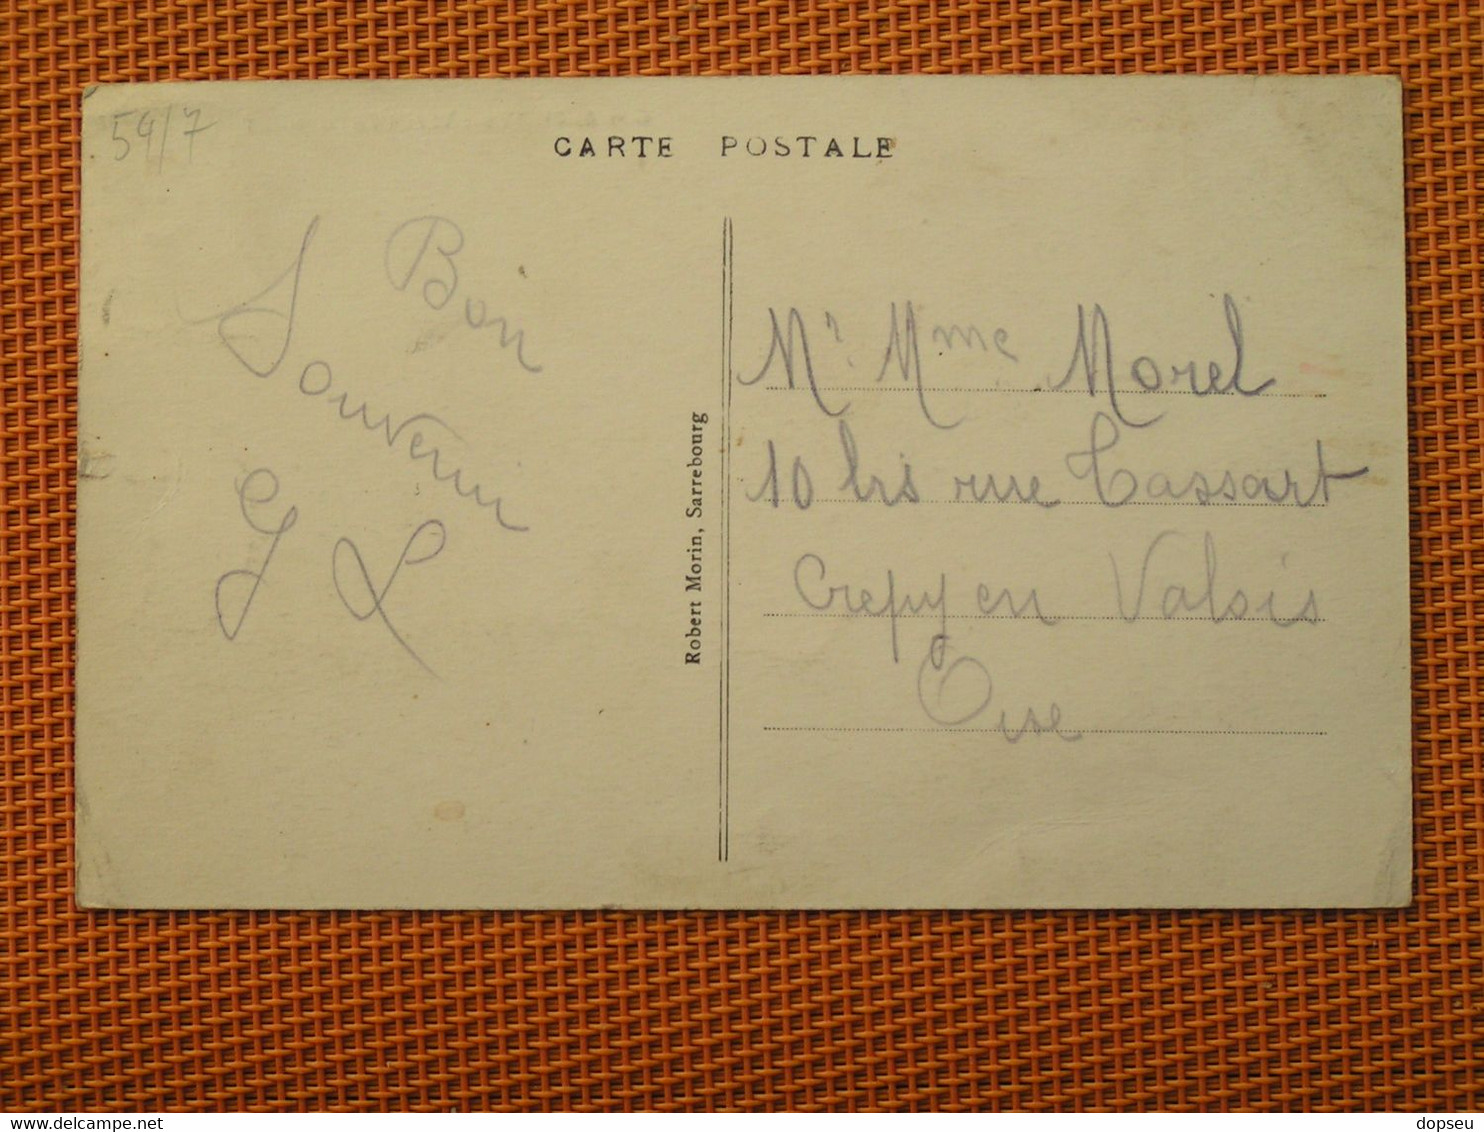 54/7
CARTE POSTALE
Bon
Souvenir
G L
Robert Morin, Sarrebourg
Mr. Mme Morel
10 bis rue Tassart
Crepy en Valois
Oise
delcampe.net
dopseu